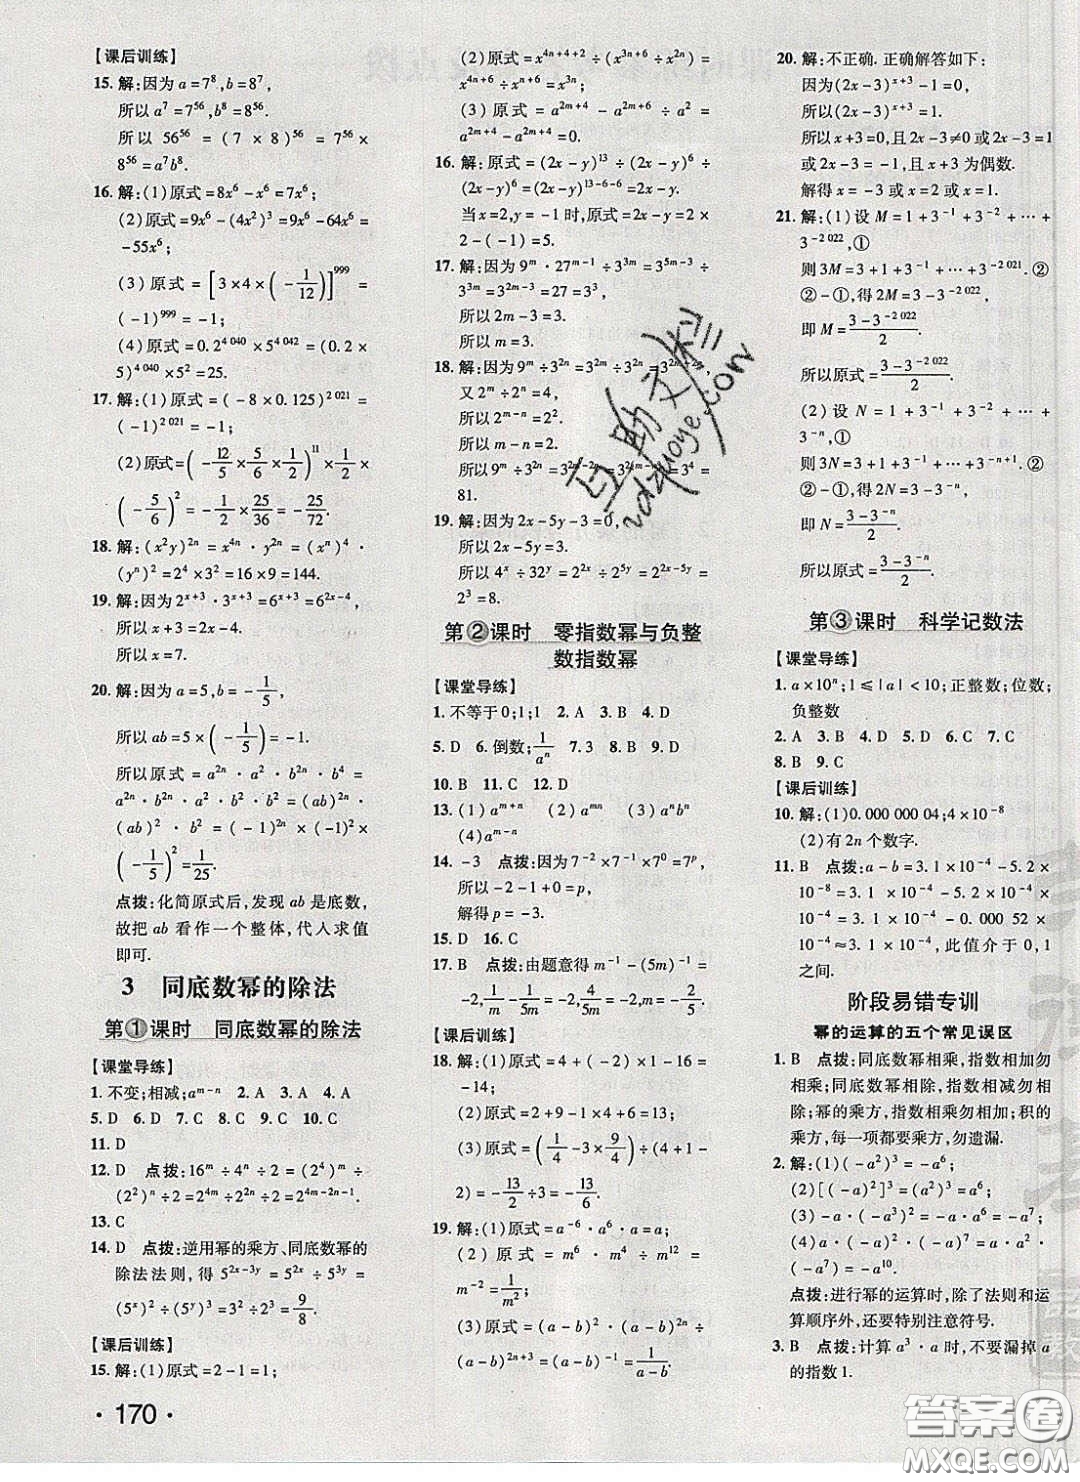 【课后训练】
15. 解:因为 a=7⁸,b=8⁷,
所以 a⁷=7⁵⁶,b⁸=8⁵⁶,
所以 56⁵⁶ = (7 × 8)⁵⁶ = 7⁵⁶ ×
8⁵⁶=a⁷b⁸.
16. 解:(1)原式=8x⁶-x⁶=7x⁶;
(2)原式=9x⁶-(4x²)³=9x⁶-64x⁶=
-55x⁶;
(3)原式=[3×4×(-1/12)]⁹⁹⁹=
(-1)⁹⁹⁹=-1;
(4)原式=0.2⁴ ⁰⁴⁰×5⁴ ⁰⁴²=(0.2×
5)⁴ ⁰⁴⁰×5²=25.
17. 解:(1)原式=(-8×0.125)² ⁰²¹=
(-1)² ⁰²¹=-1;
(2)原式=(-12/5×5/6×1/2)¹¹×1/2=
(-5/6)²×(-1/2)=25/36×(-1/2)=-25/72.
18. 解:(x²y)²ⁿ=x⁴ⁿ·y²ⁿ=(xⁿ)⁴·
(yⁿ)²=2⁴×3²=16×9=144.
19. 解:因为2ˣ⁺³·3ˣ⁺³=6ˣ⁺³=6²ˣ⁻⁴,
所以 x+3=2x-4.
所以 x=7.
20. 解:因为 a=5,b=-1/5,
所以 ab=5×(-1/5)=-1.
所以原式=a²ⁿ·a²·b²ⁿ·b⁴ⁿ=
a²ⁿ·b²ⁿ·a²·b²·b²=(ab)²ⁿ·
(ab)²·b²=(-1)²ⁿ×(-1)²×
(-1/5)²=1×1×1/25=1/25.
点拨:化简原式后,发现 ab 是底数,
故把 ab 看作一个整体,代入求值
即可.
3 同底数幂的除法
第①课时 同底数幂的除法
【课堂导练】
1. 不变;相减;aᵐ⁻ⁿ 2. A 3. A 4. A
5. D 6. D 7. D 8. C 9. C 10. C
11. D
12. D 点拨:16ᵐ÷4ⁿ÷2=(2⁴)ᵐ÷
(2²)ⁿ÷2=2⁴ᵐ÷2²ⁿ÷2=2⁴ᵐ⁻²ⁿ⁻¹.
13. C
14. D 点拨:逆用幂的乘方、同底数幂的
除法法则,得 5²ˣ⁻³ʸ=5²ˣ÷5³ʸ=
(5ˣ)²÷(5ʸ)³=3²÷2³=9/8.
【课后训练】
15. 解:(1)原式=2-1=1;
(2)原式=xⁿ⁺⁴ⁿ⁺²÷(x³ⁿ⁺⁶÷xⁿ⁺²)=
x⁴ⁿ⁺⁶÷x²ⁿ⁺⁴=x²ⁿ⁺²;
(3)原式=a²ᵐ⁺⁴-a²ᵐ⁺⁶÷a²=
a²ᵐ⁺⁴-a²ᵐ⁺⁴=0.
16. 解:原式=(2x-y)¹³÷(2x-y)⁶÷
(2x-y)⁶=(2x-y)¹³⁻⁶⁻⁶=2x-y.
当 x=2,y=-1时,原式=2x-y=2×
2-(-1)=5.
17. 解:因为 9ᵐ·27ᵐ⁻¹÷3³ᵐ=3²ᵐ·3³ᵐ⁻³÷
3³ᵐ=3²ᵐ⁻³=27=3³,
所以 2m-3=3.
所以 m=3.
18. 解:因为9ᵐ÷3²ⁿ=3²ᵐ÷3²ⁿ=3²ᵐ⁻²ⁿ,
又 2ᵐ÷2ⁿ=4,
所以 2ᵐ⁻ⁿ=2².
所以 m-n=2.
所以9ᵐ÷3²ⁿ=3²ᵐ⁻²ⁿ=3²⁽ᵐ⁻ⁿ⁾=3⁴=
81.
19. 解:因为 2x-5y-3=0,
所以 2x-5y=3.
所以 4ˣ÷32ʸ=2²ˣ÷2⁵ʸ=2²ˣ⁻⁵ʸ=
2³=8.
第②课时 零指数幂与负整
数指数幂
【课堂导练】
1. 不等于0;1;1 2. A 3. B 4. D
5. D 6. 倒数;1/aⁿ 7. 3 8. B 9. D
10. B 11. C 12. D
13. (1)aᵐ⁺ⁿ (2)aᵐⁿ (3)aⁿbⁿ
(4)aᵐ⁻ⁿ
14. -3 点拨:因为7⁻²×7⁻¹×7⁰=7ᵖ,
所以 -2-1+0=p,
解得 p=-3.
15. D 16. C
17. B 点拨:由题意得 m⁻¹-(5m)⁻¹=
-2,1/m-1/5m=-2,4/5m=-2,m=-2/5.
【课后训练】
18. 解:(1)原式=4+(-2)×1-16=
-14;
(2)原式=2+9-1×4+6=13;
(3)原式=(1/4-3×9/4)÷(4+1-
2)=-13/2÷3=-13/6.
19. 解:(1)原式=a⁻⁶·a⁶·a=a;
(2)原式=m⁶·m⁴÷m¹²=
m⁻²=1/m²;
(3)原式=(a-b)²·(a-b)²ⁿ÷
(a-b)²ⁿ⁺³=(a-b)⁻¹=1/a-b.
20. 解:不正确. 正确解答如下:
因为(2x-3)ˣ⁺³-1=0,
所以(2x-3)ˣ⁺³=1.
所以 x+3=0,且 2x-3≠0 或2x-3=1
或 2x-3=-1,且 x+3 为偶数.
解得 x=-3 或 x=2 或 x=1.
21. 解:(1)设 M=1+3⁻¹+3⁻²+…+
3⁻² ⁰²²,①
则 3M=3+1+3⁻¹+…+3⁻² ⁰²¹.②
②-①,得 2M=3-3⁻² ⁰²²,
即 M=3-3⁻² ⁰²²/2.
所以原式=3-3⁻² ⁰²²/2.
(2)设 N=1+3⁻¹+3⁻²+…+
3⁻ⁿ,①
则3N=3+1+3⁻¹+…+3⁻ⁿ⁺¹.②
②-①,得 2N=3-3⁻ⁿ,
即 N=3-3⁻ⁿ/2.
所以原式=3-3⁻ⁿ/2.
第③课时 科学记数法
【课堂导练】
1. a×10ⁿ;1≤|a|<10;正整数;位数;
负整数
2. A 3. B 4. D 5. D 6. C 7. C
8. B 9. C
【课后训练】
10. 解:(1)0.000 000 04;4×10⁻⁸
(2)有 2n 个数字.
11. B 点拨:a-b=3.1×10⁻⁴-5.2×
10⁻⁸=3.1×10⁻⁴-5.2×10⁻⁴×
10⁻⁴=3.1×10⁻⁴-0.000 52×
10⁻⁴≈3.099×10⁻⁴,此值介于 0,1
之间.
阶段易错专训
幂的运算的五个常见误区
1. B 点拨:同底数幂相乘,指数相加勿
相乘;同底数幂相除,指数相减勿相
除;幂的乘方,指数相乘勿相加;积的
乘方,每一项都要乘方,勿遗漏.
2. 解:(1)(-a²)³=-a⁶;
(2)[(-a)²]³=(a²)³=a⁶;
(3)-a·(-a²)³... 
(4)a·(-a)²·(-a)⁷=a·a²·
(-a⁷)=-a¹⁰.
点拨:进行幂的运算时,除了法则和运
算顺序外,还要特别注意符号.
3. B 点拨:计算 a³·a 时,不要漏掉 a
的指数 1.
· 170 ·
答案圈
MXQE.COM